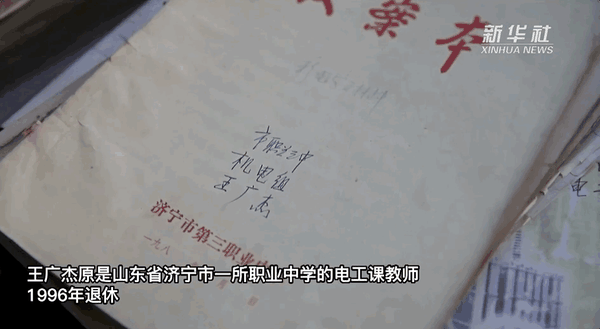 新华社
XINHUA NEWS
案本
市职三中
机电组
王广杰
济宁市第三职业中
一九八
王广杰原是山东省济宁市一所职业中学的电工课教师
1996年退休